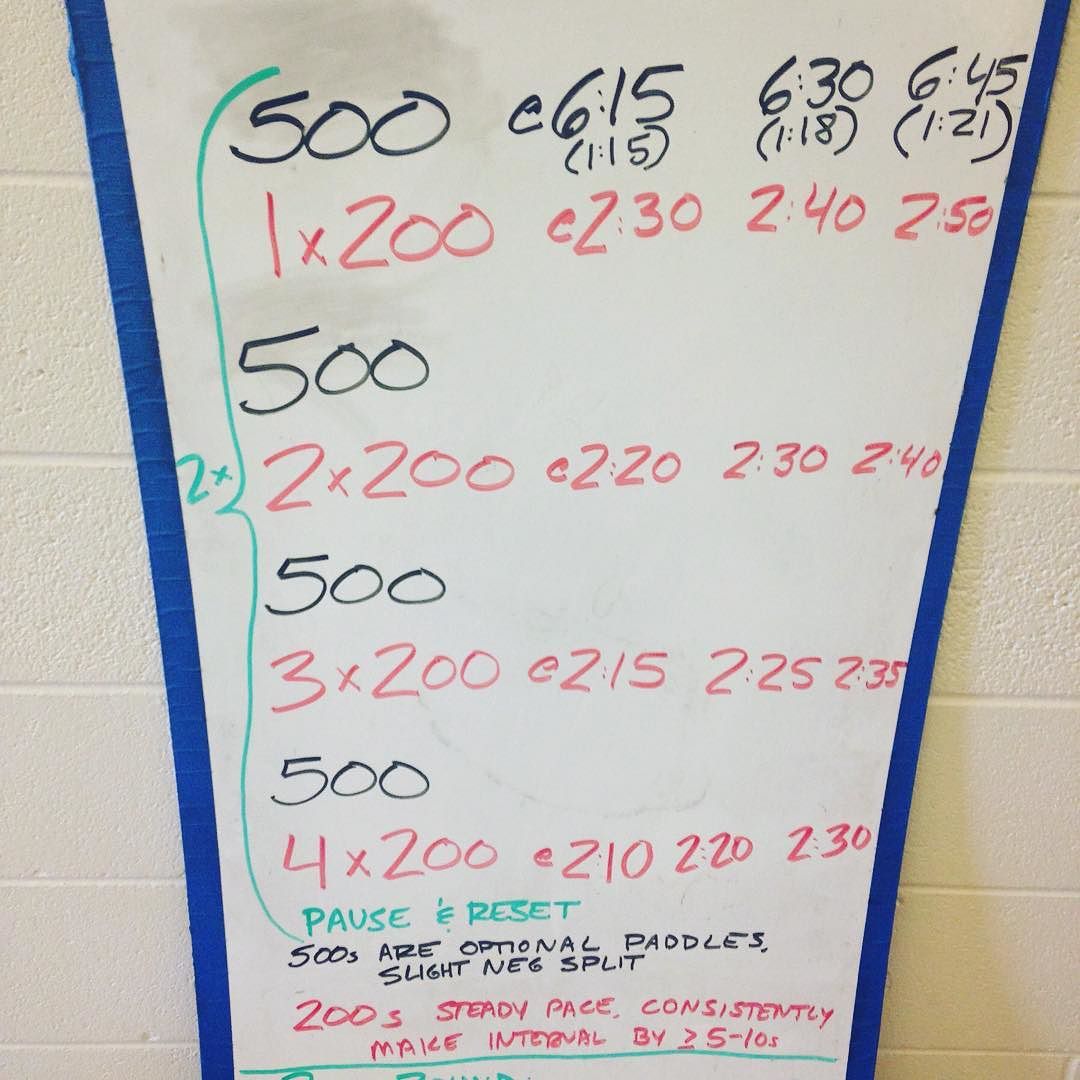 500 @ 6:15 6:30 6:45
(1:15) (1:18) (1:21)
1 x 200 @ 2:30 2:40 2:50
500
2x
2 x 200 @ 2:20 2:30 2:40
500
3 x 200 @ 2:15 2:25 2:35
500
4 x 200 @ 2:10 2:20 2:30
PAUSE & RESET
500s ARE OPTIONAL PADDLES,
SLIGHT NEG SPLIT
200s STEADY PACE. CONSISTENTLY
MAKE INTERVAL BY ≥ 5-10s